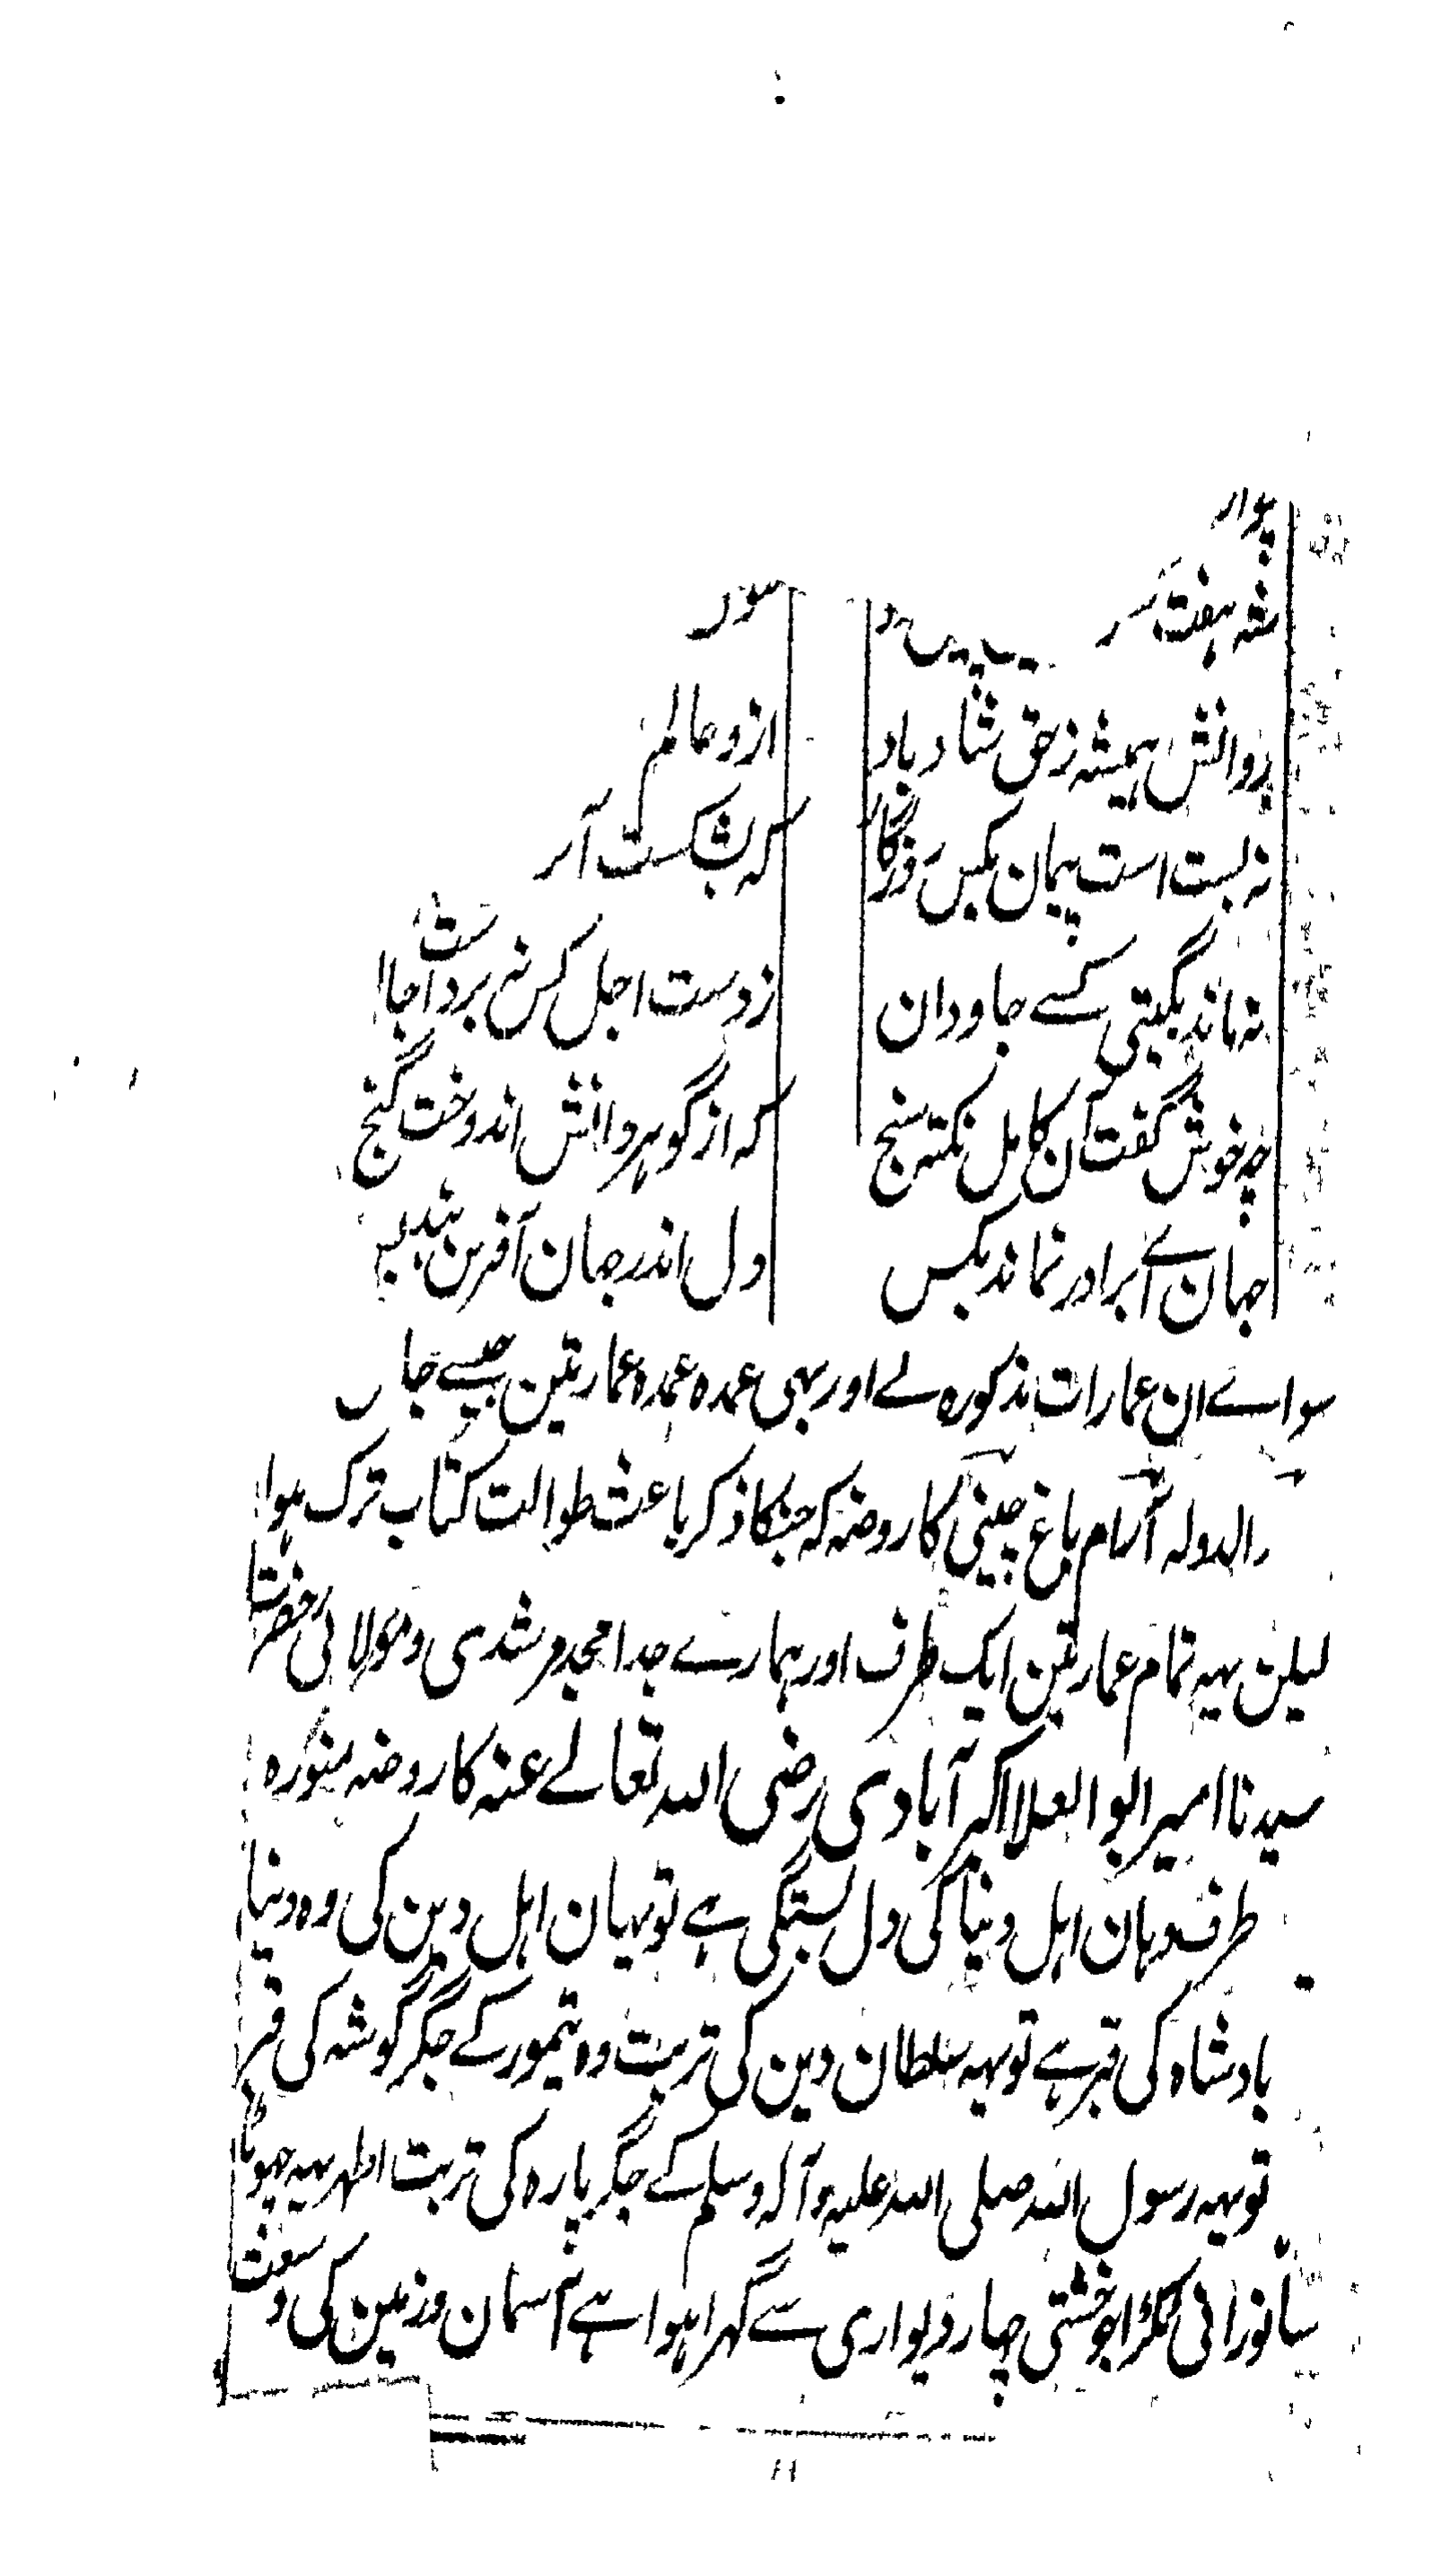 شہ ہفت
روانش ہمیشہ ز حق شاد باد از و عالم
نہ بست است پیمان بکس روزگار کہ بشکست آ
نہ ماند بگیتی کسے جاودان ز دست اجل کس نے برد
چہ خوش گفت آن کامل نکتہ سنج کہ از گوہر دانش اندوخت گنج
جہان اے برادر نماند بکس دل اندر جہان آفرین بند بس
سواے ان عمارات مذکورہ کے اور بہی عمدہ عمدہ عمارتین جیسے
الدولہ آرام باغ چینی کا روضہ کہ جنکا ذکر باعث طوالت کتاب ترک ہوا
لیکن یہہ تمام عمارتین ایک طرف اور ہمارے جد امجد مرشدی و مولائی حضرت
سیدنا امیر ابو العلا اکبر آبادی رضی اللہ تعالے عنہ کا روضہ منورہ
طرف وہان اہل دنیا کی دل بستگی ہے تو یہان اہل دین کی وہ دنیا
بادشاہ کی قبر ہے تو یہہ سلطان دین کی تربت وہ تیمور کے جگر گوشہ کی قبر
تو یہہ رسول اللہ صلی اللہ علیہ و آلہ وسلم کے جگر پارہ کی تربت اطہر یہہ چہوٹا
سا نورانی ٹکڑا جو خشتی چار دیواری سے گہرا ہوا ہے آسمان و زمین کی وسعت